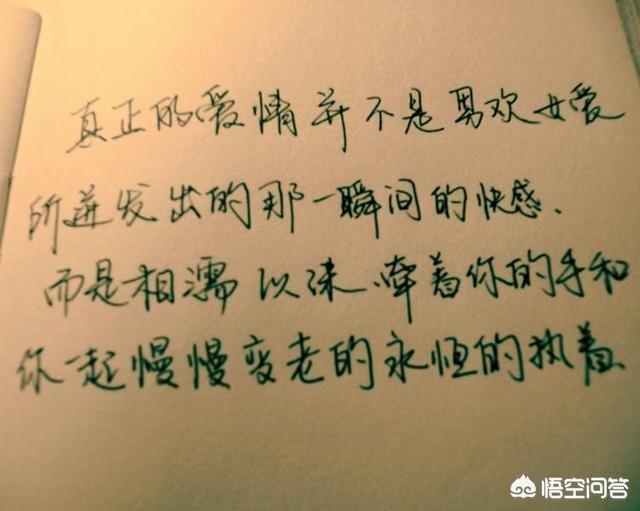 真正的爱情并不是男欢女爱
所迸发出的那一瞬间的快感.
而是相濡以沫、牵着你的手和
你一起慢慢变老的永恒的执着.
悟空问答